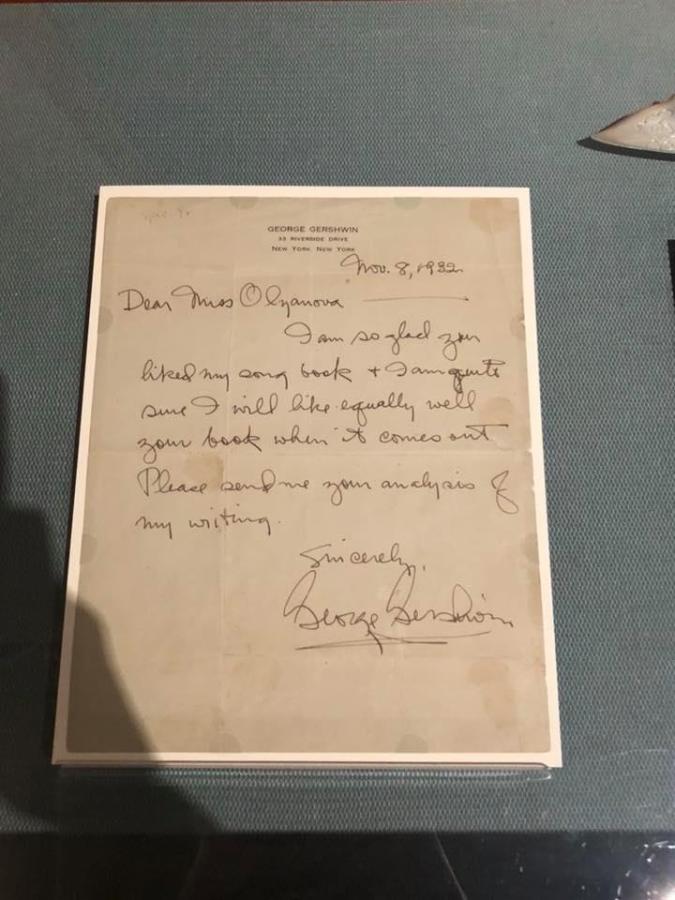 GEORGE GERSHWIN
33 RIVERSIDE DRIVE
NEW YORK, NEW YORK
Nov. 8, 1932
Dear Miss Olyanova
I am so glad you
liked my song book + I am quite
sure I will like equally well
your book when it comes out
Please send me your analysis of
my writing.
Sincerely,
George Gershwin